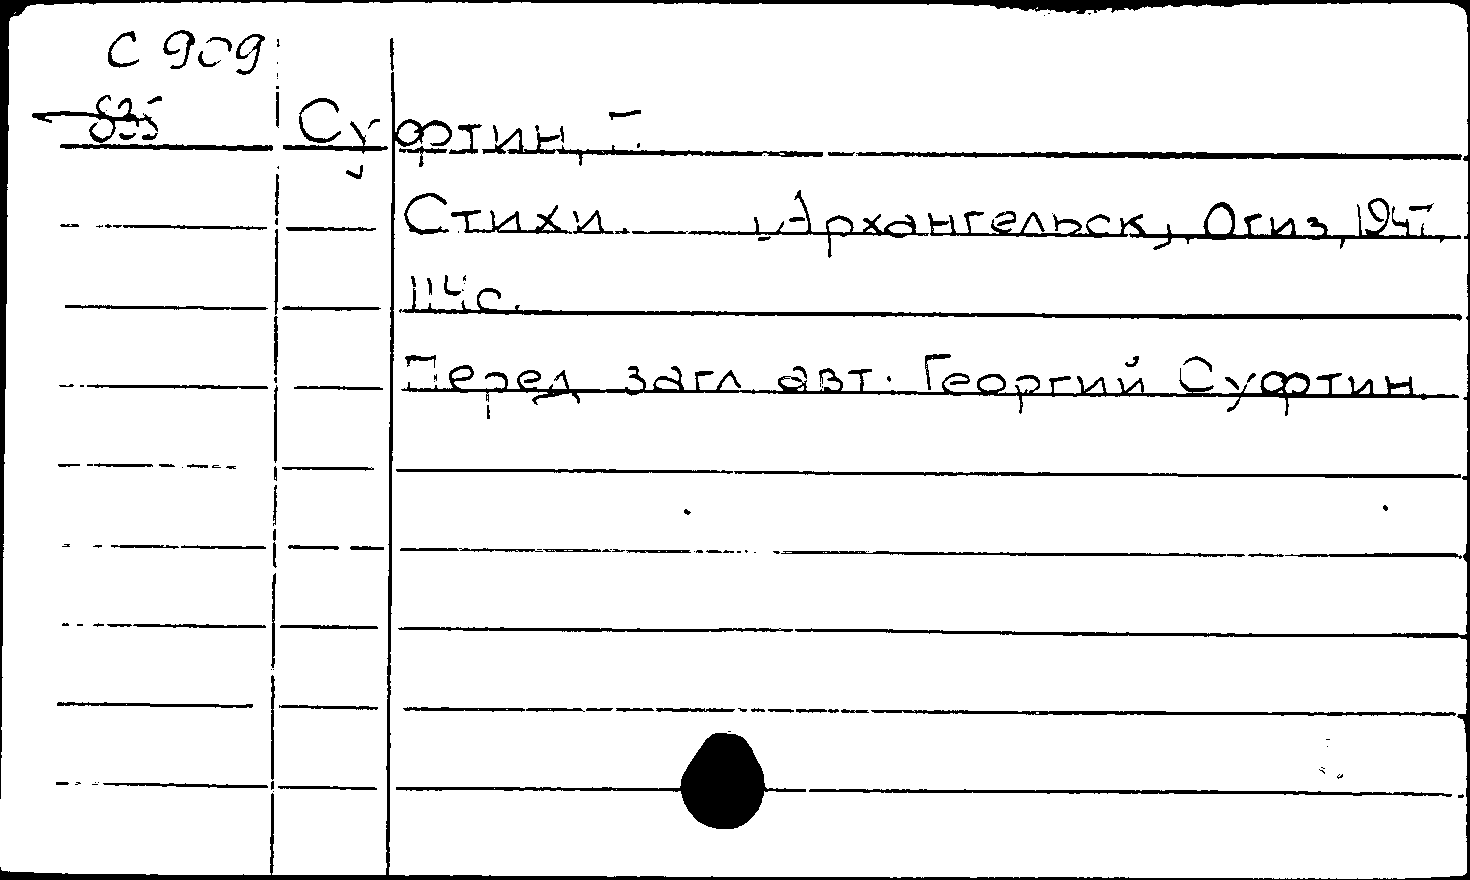 С 909
835
Суфтин, Г.
Стихи. Архангельск, Огиз, 1947.
114с.
Перед загл авт. Георгий Суфтин.